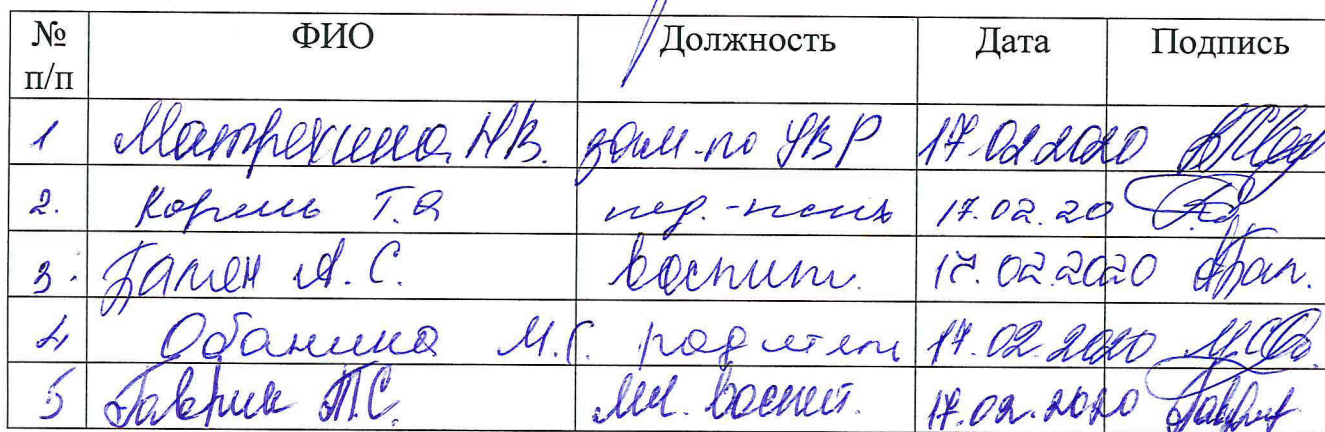 № п/п ФИО Должность Дата Подпись
1 Матрехина Н.В. зам. по УВР 17.02.2020
2. Король Т.А пед.-псих 17.02.20
3. А.С. воспит. 17.02.2020
4 Обанина М.С. родитель 17.02.2020
5 Гаврик Т.С. мл. воспит. 17.02.2020